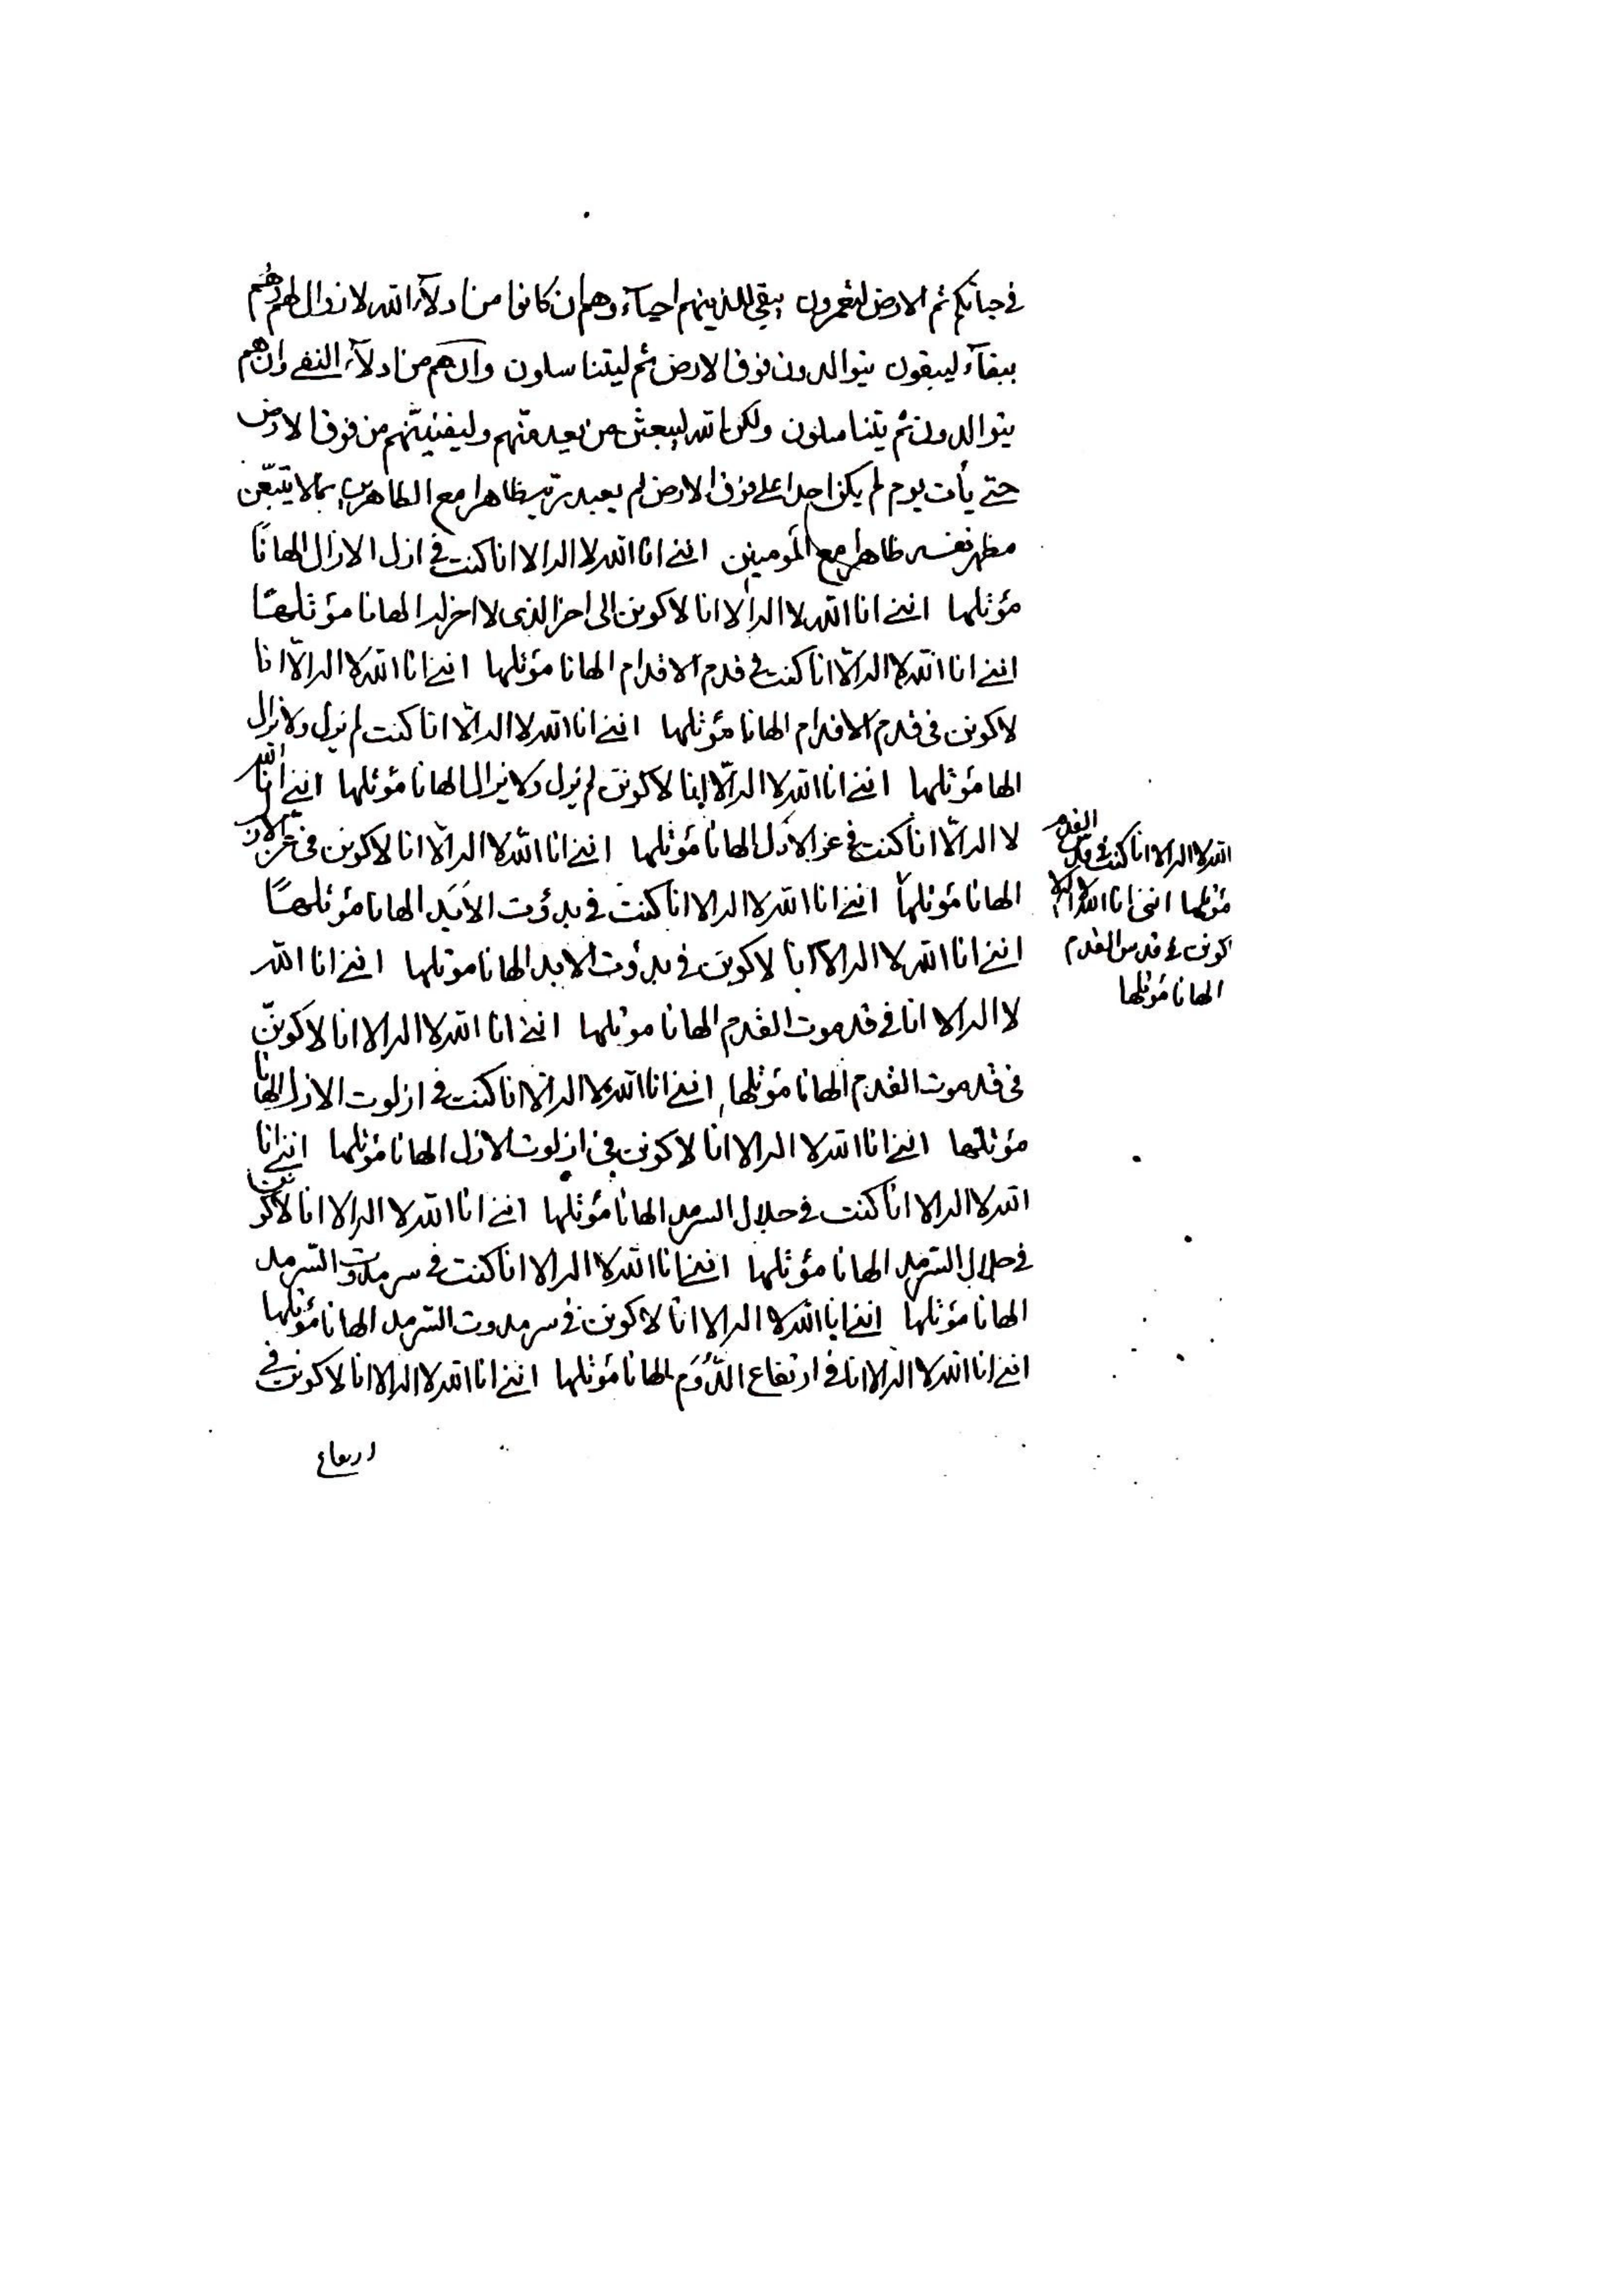 في حياتكم ثم الارض لتعمرون يبقى للذينهم احيآء وهم ان كانوا من ادلآء الله لا زوال لهم وهم
ببقآء ليبقون يتوالدون فوق الارض ثم ليتناسلون وان هم من ادلآء النفي وان هم
يتوالدون ثم يتناسلون ولكن الله ليبعثن من بعد منهم وليفنينهم من فوق الارض
حتى يأت يوم لم يكن احدا على فوق الارض لم يعبد ربه ظاهرا مع الظاهرين بما لا يتبعن
مظهر نفسه ظاهرا مع المومنين انني انا الله لا اله الا انا كنت في ازل الازال الها نا
مؤتلها انني انا الله لا اله الا انا لاكونن الى اخر الذي لا اخر له الها نا مؤتلها
انني انا الله لا اله الا انا كنت في قدم الاقدام الها نا مؤتلها انني انا الله لا اله الا انا
لاكونن في قدم الاقدام الها نا مؤتلها انني انا الله لا اله الا انا كنت لم يزل ولا يزال
الها مؤتلها انني انا الله لا اله الا انا لاكونن لم يزل ولا يزال الها نا مؤتلها انني انا الله
لا اله الا انا كنت في عز الازل الها نا مؤتلها انني انا الله لا اله الا انا لاكونن في عز الازل
الها نا مؤتلها انني انا الله لا اله الا انا كنت في بدؤت الابد الها نا مؤتلها
انني انا الله لا اله الا انا لاكونن في بدؤت الابد الها نا موتلها انني انا الله
لا اله الا انا في قدموت القدم الها نا موتلها انني انا الله لا اله الا انا لاكونن
في قدموت القدم الها نا مؤتلها انني انا الله لا اله الا انا كنت في ازلوت الازل الها نا
مؤتلها انني انا الله لا اله الا انا لاكونن في ازلوت الازل الها نا مؤتلها انني انا
الله لا اله الا انا كنت في جلال السرمد الها نا مؤتلها انني انا الله لا اله الا انا لاكونن
في جلال السرمد الها نا مؤتلها انني انا الله لا اله الا انا كنت في سرمدوت السرمد
الها نا مؤتلها انني انا الله لا اله الا انا لاكونن في سرمدوت السرمد الها نا مؤتلها
انني انا الله لا اله الا انا في ارتفاع الدؤم الها نا مؤتلها انني انا الله لا اله الا انا لاكونن في
ارتفاع
الله لا اله الا انا كنت في قدس القدم
مؤتلها انني انا الله لا اله الا
اكونن في قدس القدم
الها نا مؤتلها